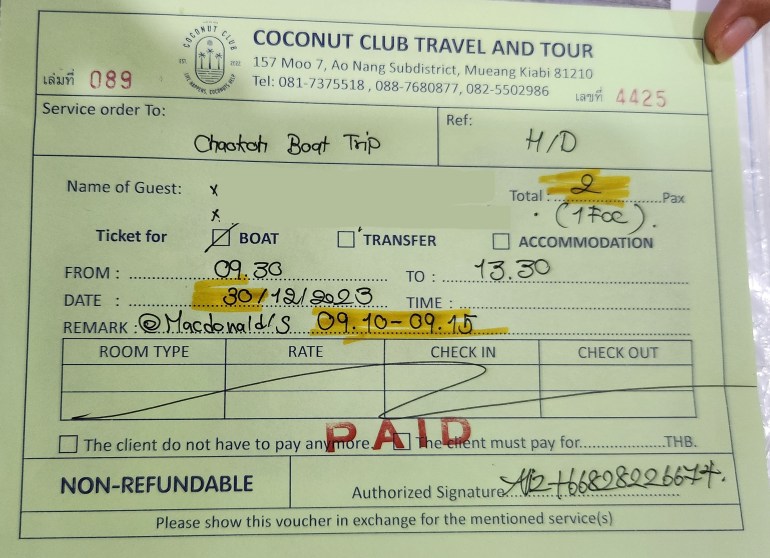 COCONUT CLUB
EST. 2022
LIFE HAPPENS, COCONUTS HELP
COCONUT CLUB TRAVEL AND TOUR
157 Moo 7, Ao Nang Subdistrict, Mueang Kiabi 81210
Tel: 081-7375518 , 088-7680877, 082-5502986
เล่มที่ 089
เลขที่ 4425
Service order To:
Chaokoh Boat Trip
Ref:
H/D
Name of Guest: x
x
Total 2 Pax
(1 FOC).
Ticket for BOAT TRANSFER ACCOMMODATION
FROM : 09.30 TO : 13.30
DATE : 30/12/2023 TIME :
REMARK : @Macdonald's 09.10-09.15
ROOM TYPE RATE CHECK IN CHECK OUT
PAID
The client do not have to pay anymore. The client must pay for THB.
NON-REFUNDABLE
Authorized Signature
Please show this voucher in exchange for the mentioned service(s)